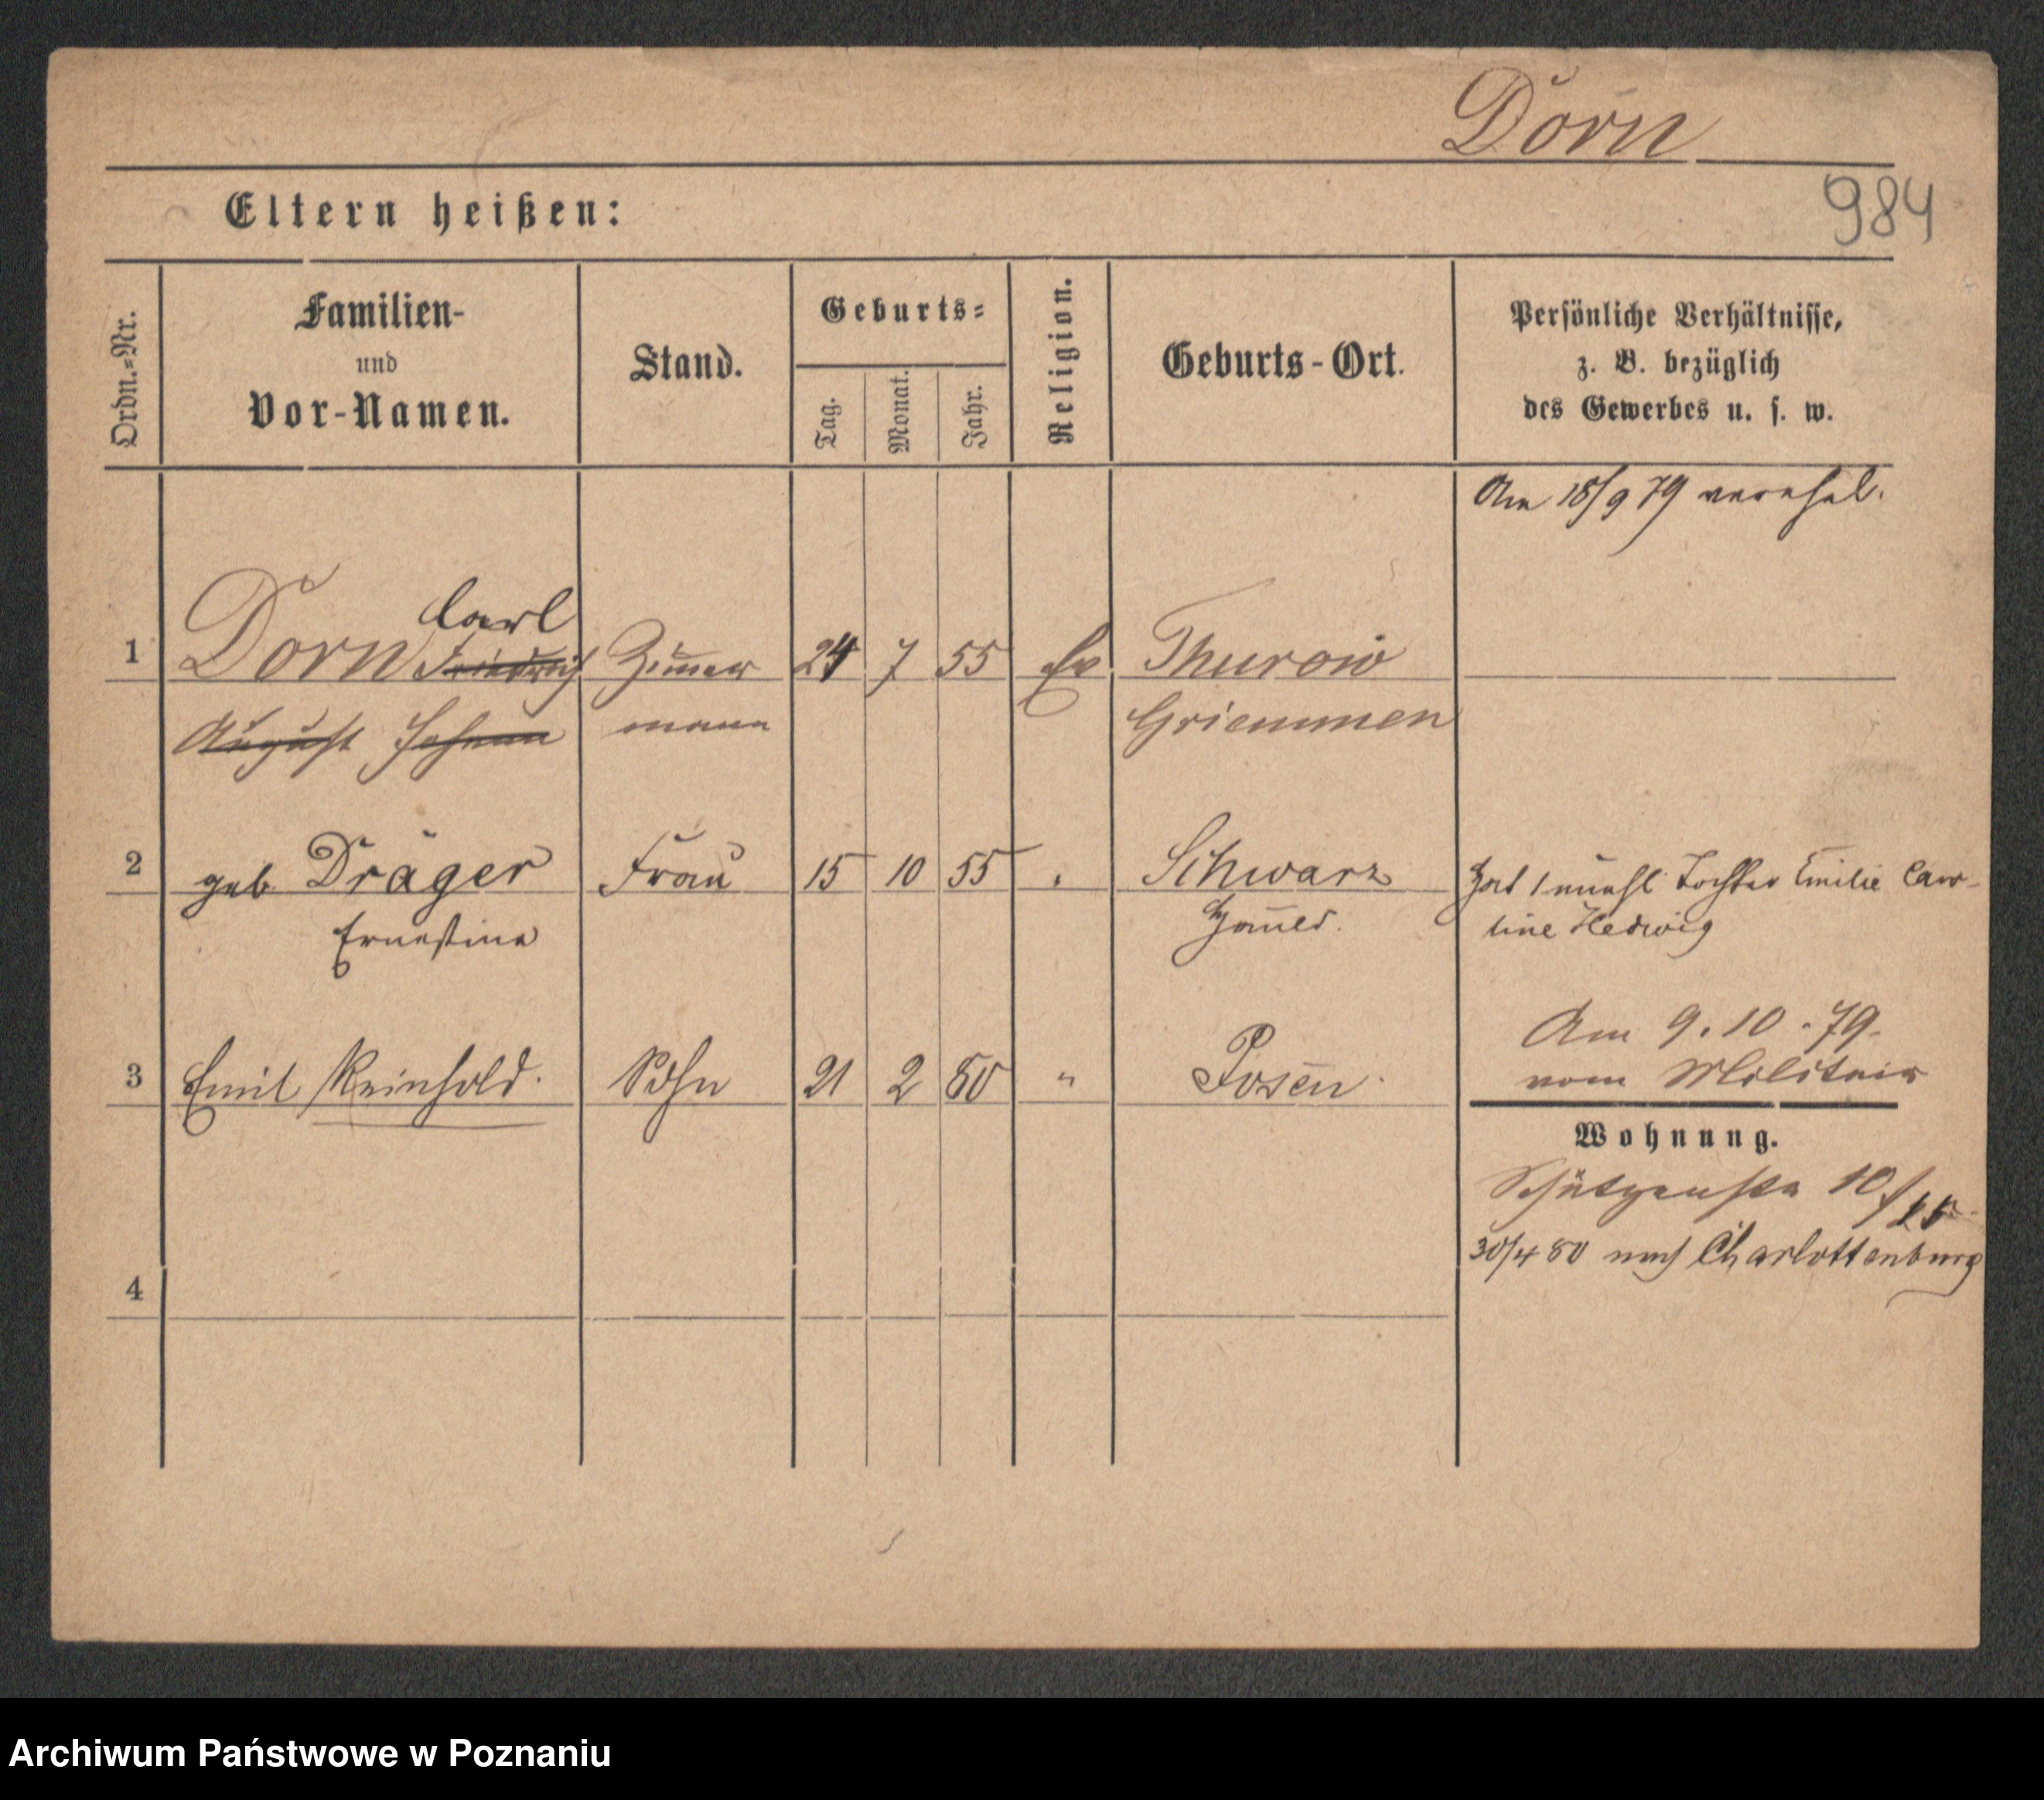 Dorn
984
Eltern heißen:
Ordn.=Nr.
Familien-
und
Vor-Namen.
Stand.
Geburts=
Tag.
Monat.
Jahr.
Religion.
Geburts-Ort.
Persönliche Verhältnisse,
z. B. bezüglich
des Gewerbes u. s. w.
Am 18/9 79 verehel.
Carl
1 Dorn Friedrich Zimer 24 7 55 Ev Thurow
August Johann mann Griemmen
2 geb. Dräger Frau 15 10 55 " Schwarz
Ernestine
Hat 1 unehl Tochter Emilie Caro-
line Hedwig
Am 9.10.79.
3 Emil Reinhold. Sohn 21 2 80 " Posen
vom Militair
Wohnung.
Schützenstr 10/
30/4 80 nach Charlottenburg
4
Archiwum Państwowe w Poznaniu